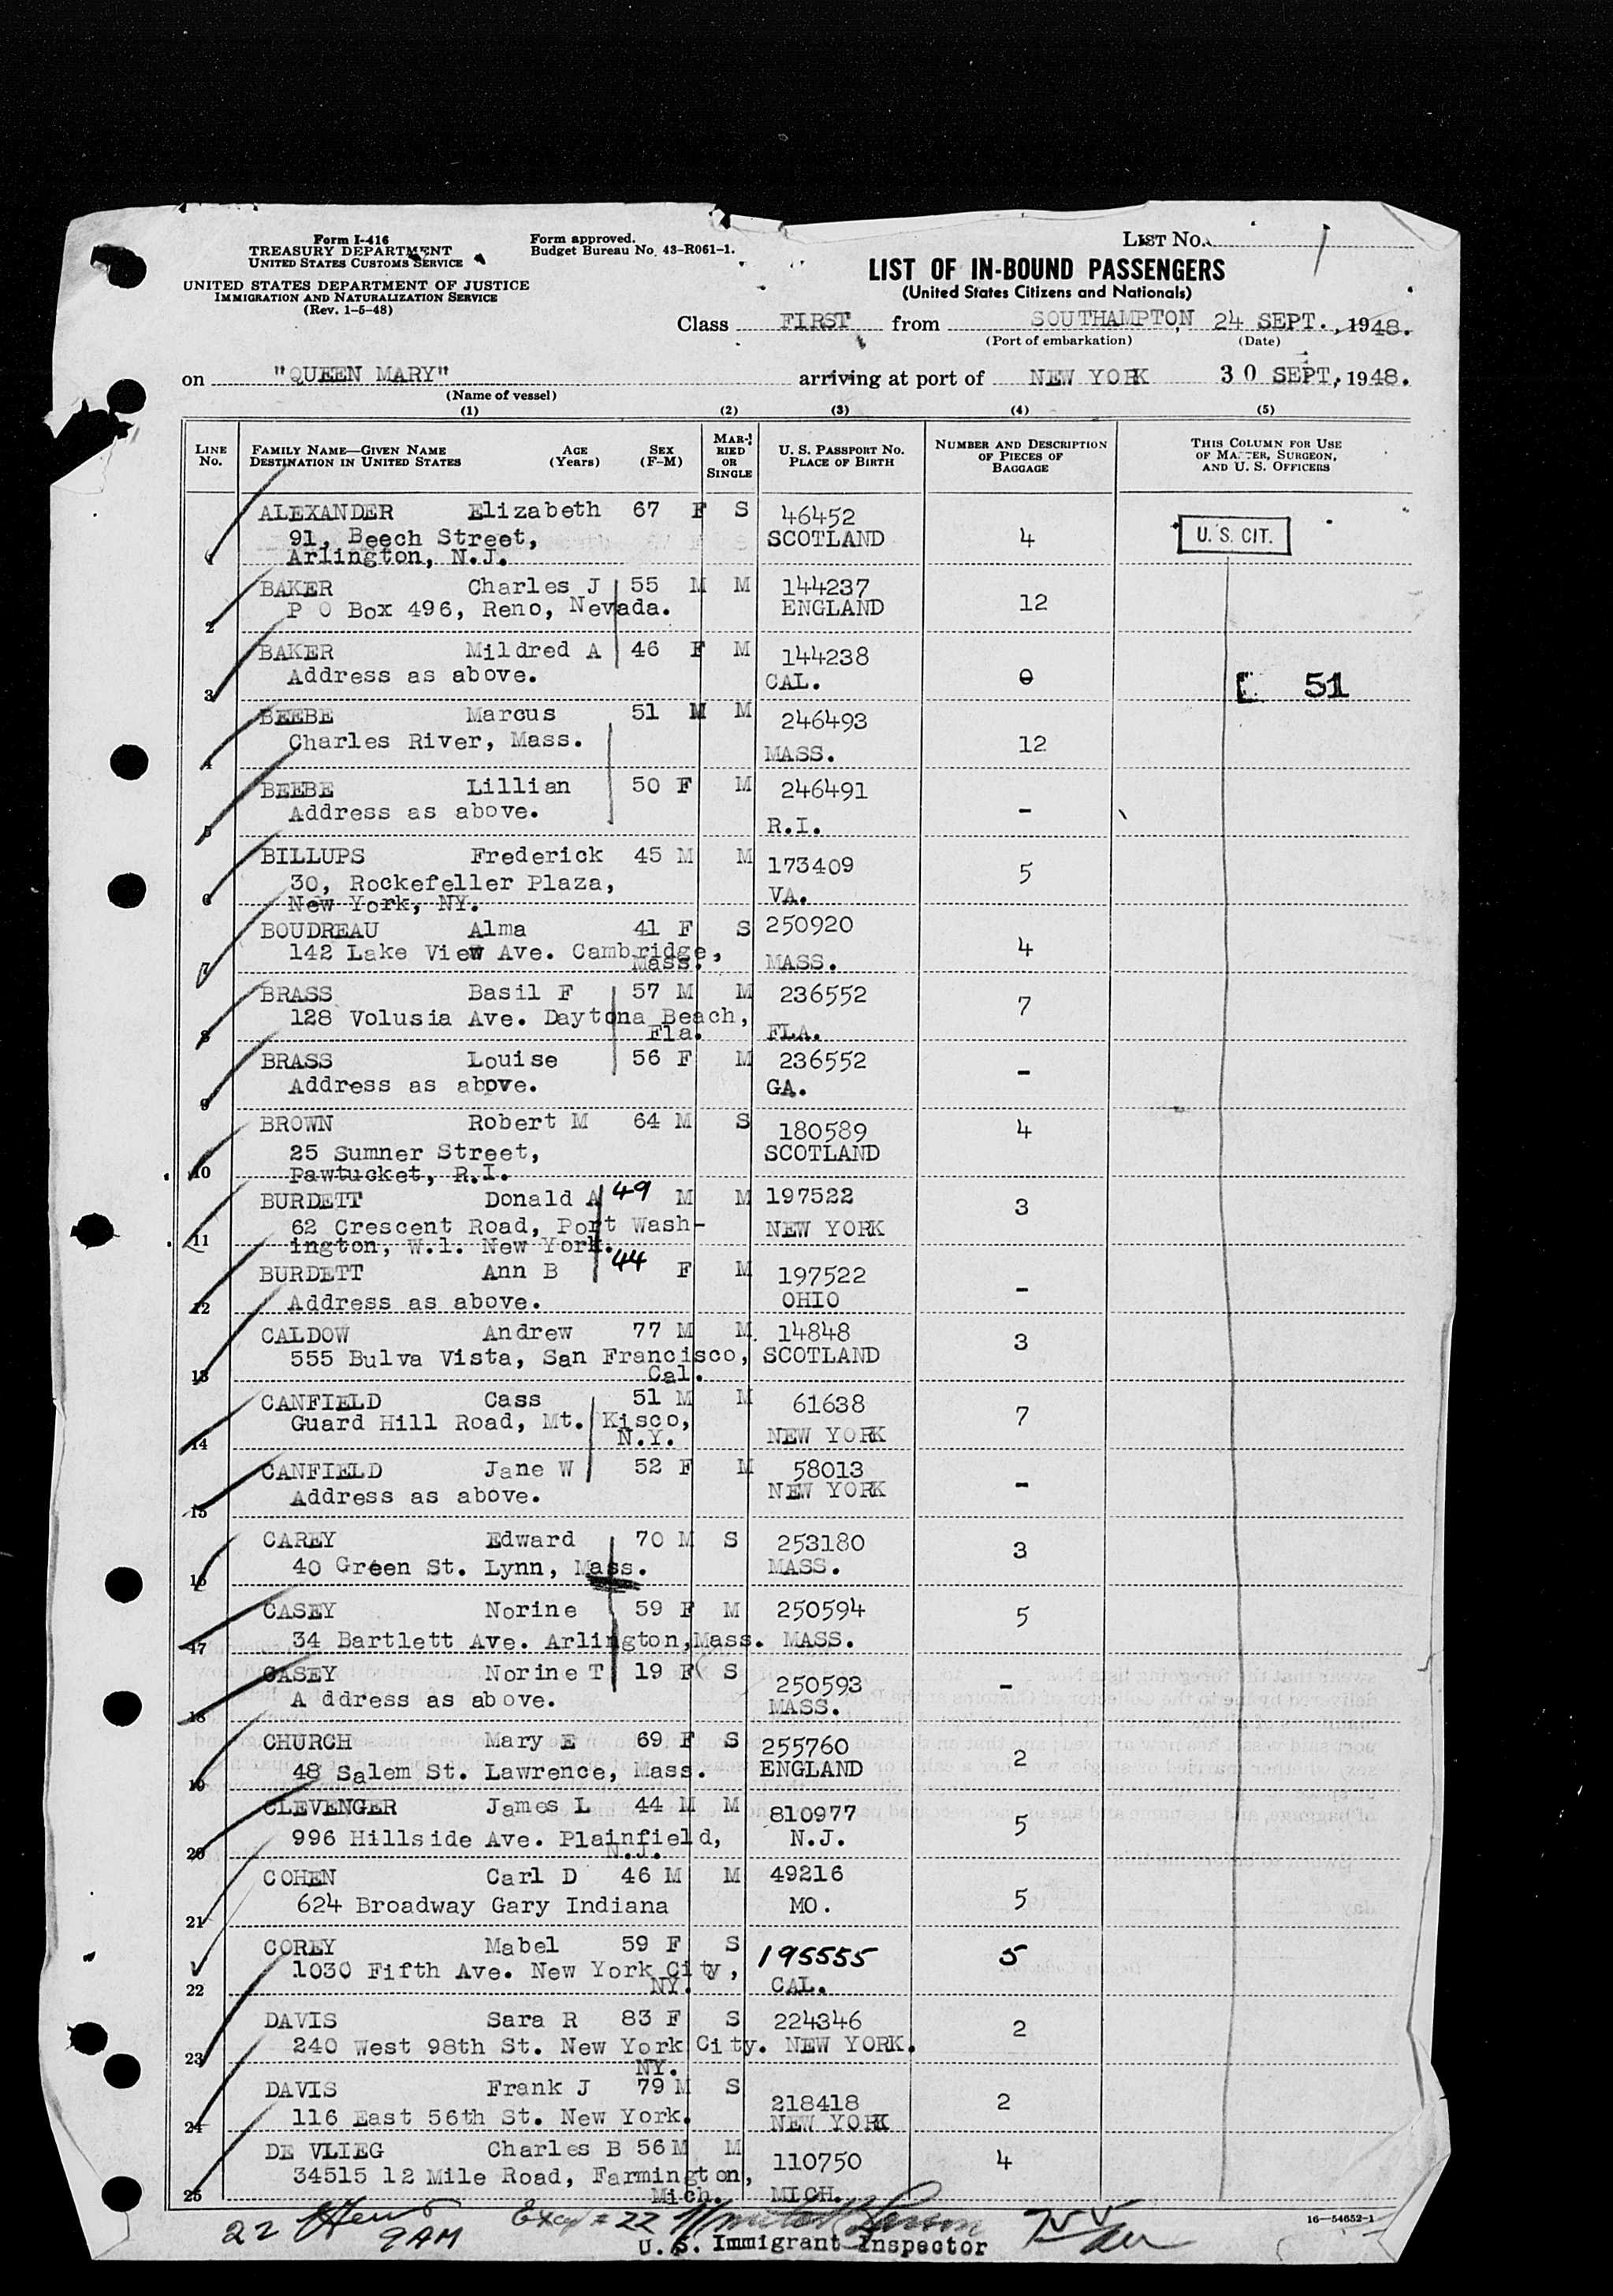 Form I-416
TREASURY DEPARTMENT
UNITED STATES CUSTOMS SERVICE
UNITED STATES DEPARTMENT OF JUSTICE
IMMIGRATION AND NATURALIZATION SERVICE
(Rev. 1-5-48)
Form approved.
Budget Bureau No. 43-R061-1.
LIST NO.
LIST OF IN-BOUND PASSENGERS
(United States Citizens and Nationals)
Class FIRST from SOUTHAMPTON, 24 SEPT., 1948.
(Port of embarkation) (Date)
on "QUEEN MARY" arriving at port of NEW YORK 30 SEPT, 1948.
(Name of vessel)
(1) (2) (3) (4) (5)
LINE NO. FAMILY NAME—GIVEN NAME DESTINATION IN UNITED STATES AGE (Years) SEX (F-M) MARRIED OR SINGLE U. S. PASSPORT NO. PLACE OF BIRTH NUMBER AND DESCRIPTION OF PIECES OF BAGGAGE THIS COLUMN FOR USE OF MASTER, SURGEON, AND U. S. OFFICERS
ALEXANDER Elizabeth 67 F S 46452
91, Beech Street, SCOTLAND 4 U. S. CIT.
1 Arlington, N.J.
BAKER Charles J 55 M M 144237
P O Box 496, Reno, Nevada. ENGLAND 12
2
BAKER Mildred A 46 F M 144238
Address as above. CAL. 0 51
3
BEEBE Marcus 51 M M 246493
Charles River, Mass. MASS. 12
4
BEEBE Lillian 50 F M 246491
Address as above. R.I. -
5
BILLUPS Frederick 45 M M 173409
30, Rockefeller Plaza, VA. 5
6 New York, NY.
BOUDREAU Alma 41 F S 250920
142 Lake View Ave. Cambridge, 4
7 Mass. MASS.
BRASS Basil F 57 M M 236552
128 Volusia Ave. Daytona Beach, 7
8 Fla. FLA.
BRASS Louise 56 F M 236552
Address as above. GA. -
9
BROWN Robert M 64 M S 180589 4
25 Sumner Street, SCOTLAND
10 Pawtucket, R.I.
BURDETT Donald A 49 M M 197522 3
62 Crescent Road, Port Wash- NEW YORK
11 ington, W.1. New York.
BURDETT Ann B 44 F M 197522
12 Address as above. OHIO -
CALDOW Andrew 77 M M 14848
555 Bulva Vista, San Francisco, SCOTLAND 3
13 Cal.
CANFIELD Cass 51 M M 61638
Guard Hill Road, Mt. Kisco, 7
14 N.Y. NEW YORK
CANFIELD Jane W 52 F M 58013
Address as above. NEW YORK -
15
CAREY Edward 70 M S 253180
40 Green St. Lynn, Mass. MASS. 3
16
CASEY Norine 59 F M 250594 5
17 34 Bartlett Ave. Arlington, Mass. MASS.
CASEY Norine T 19 F S 250593
A ddress as above. MASS. -
18
CHURCH Mary E 69 F S 255760
48 Salem St. Lawrence, Mass. ENGLAND 2
19
CLEVENGER James L 44 M M 810977
996 Hillside Ave. Plainfield, N.J. 5
20 N.J.
COHEN Carl D 46 M M 49216
624 Broadway Gary Indiana MO. 5
21
COREY Mabel 59 F S 195555 5
1030 Fifth Ave. New York City,
22 NY. CAL.
DAVIS Sara R 83 F S 224346
23 240 West 98th St. New York City. NEW YORK. 2
NY.
DAVIS Frank J 79 M S 218418 2
24 116 East 56th St. New York. NEW YORK
DE VLIEG Charles B 56 M M 110750 4
34515 12 Mile Road, Farmington,
25 Mich. MICH.
22 9 AM
22
U. S. Immigrant Inspector
16-54652-1